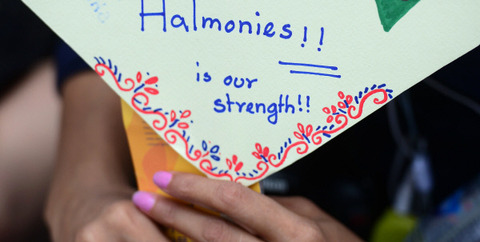 Halmonies!!
is our
strength!!